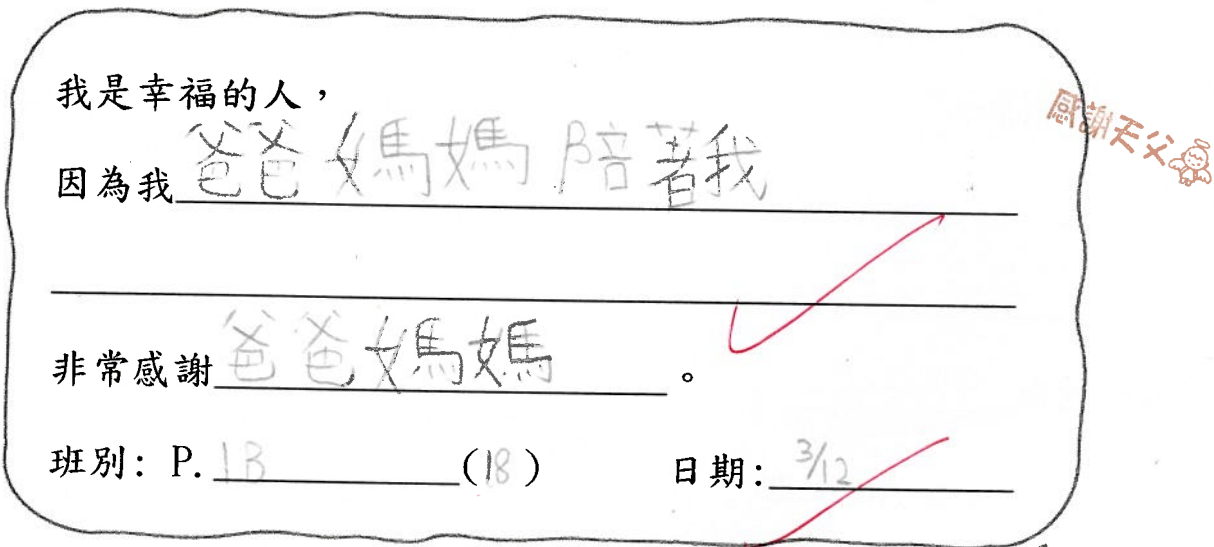 我是幸福的人，
感謝天父
因為我爸爸媽媽陪著我
非常感謝爸爸媽媽。
班別: P. 1B (18) 日期: 3/12